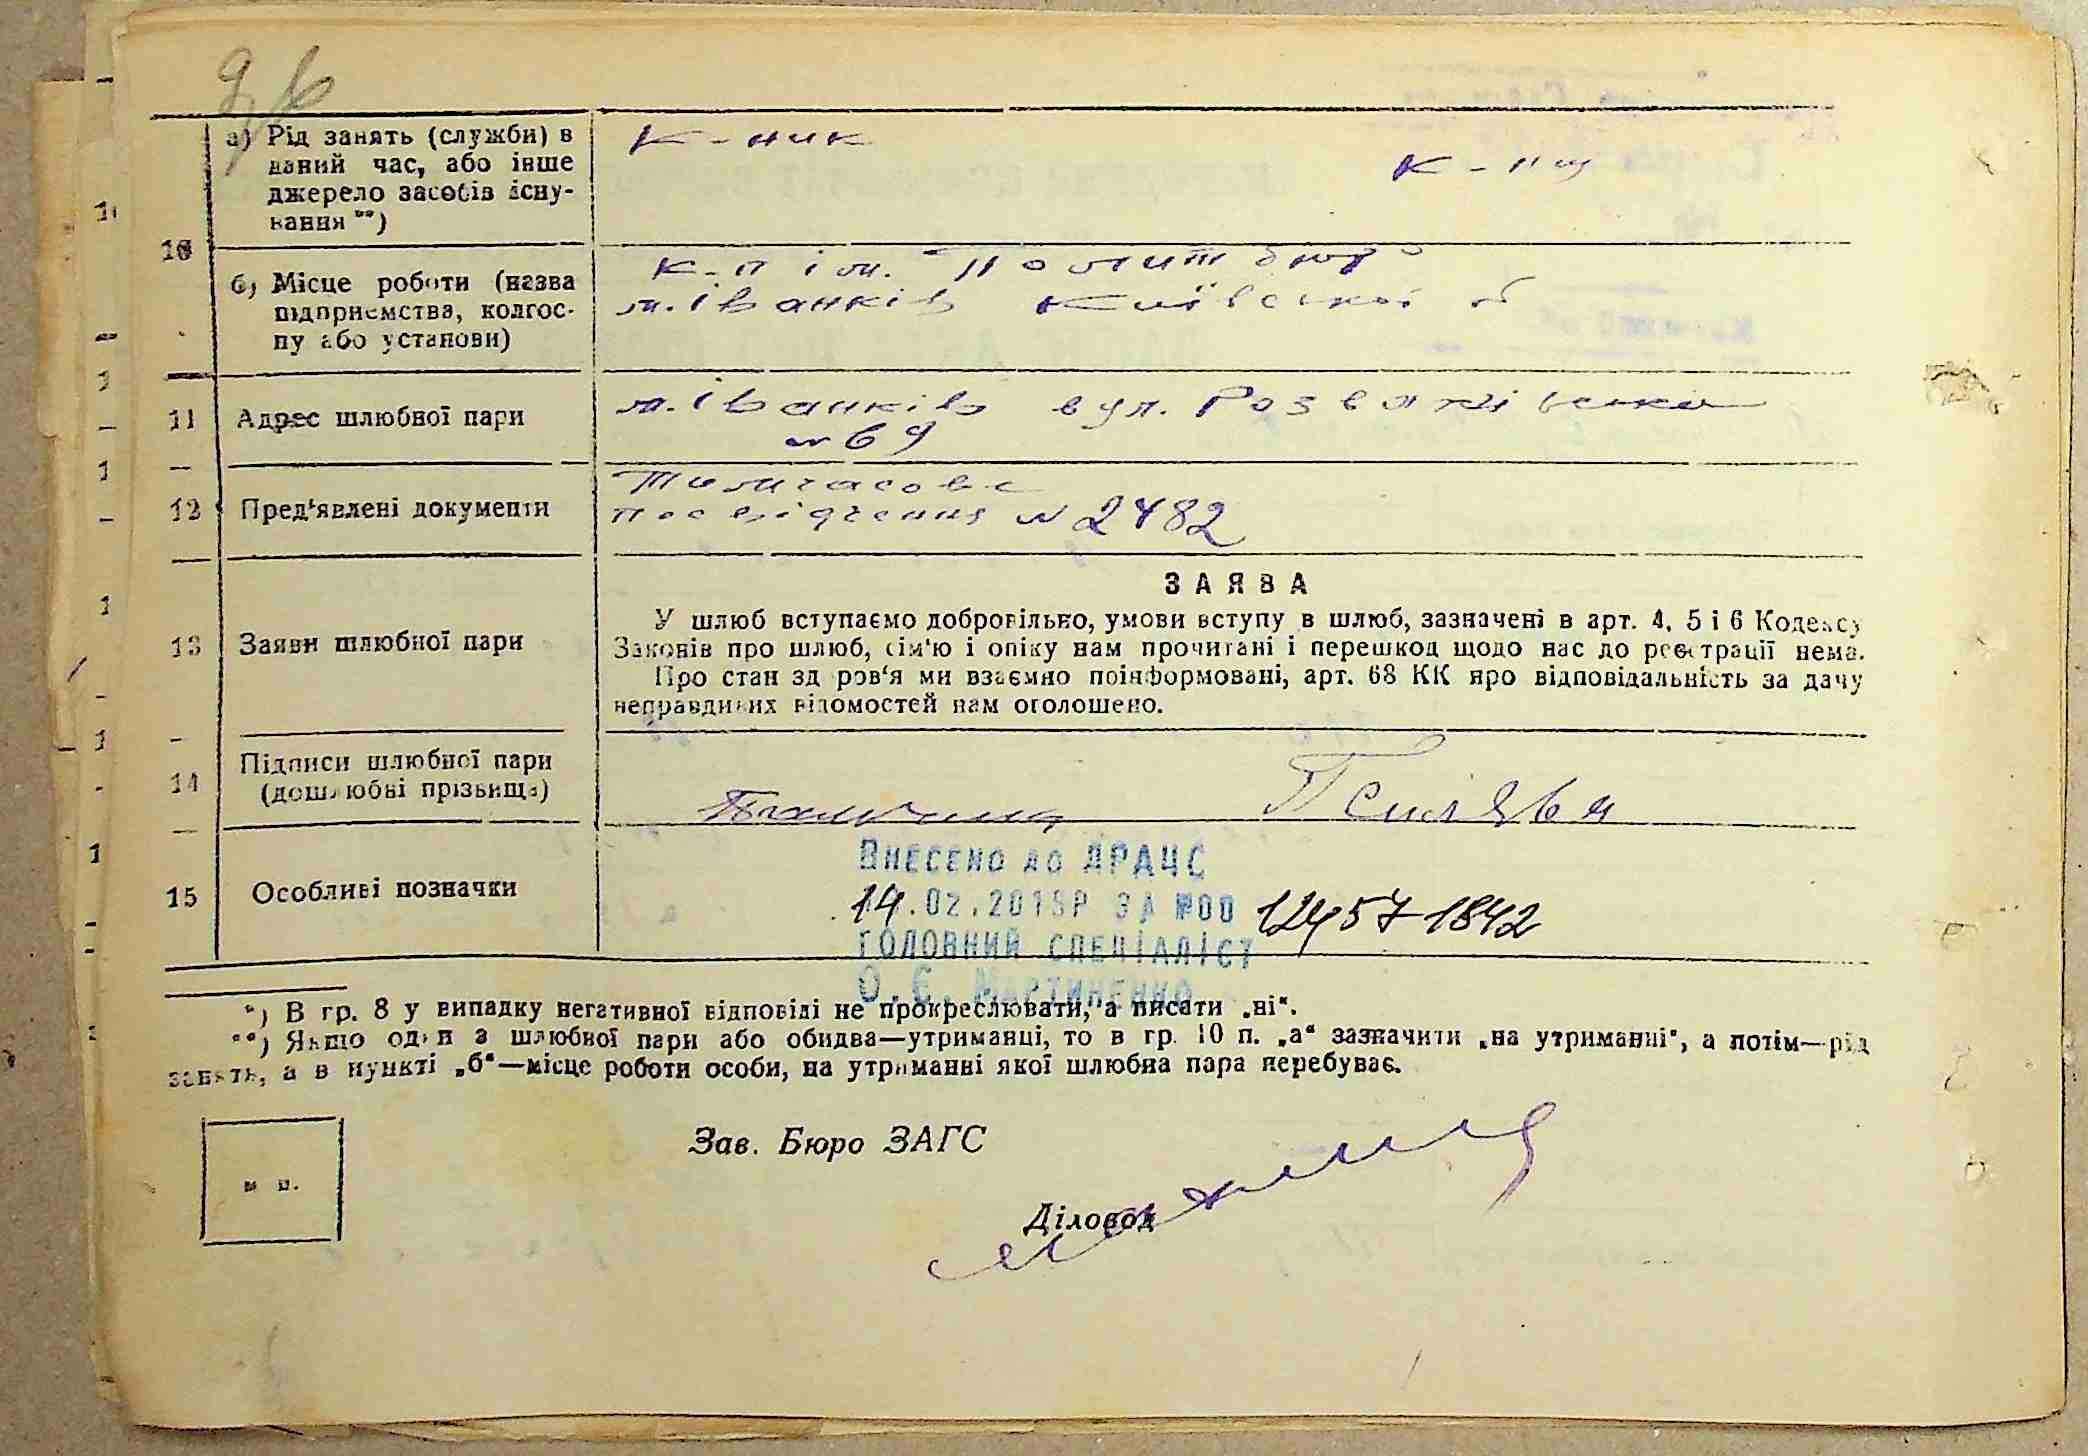 10
а) Рід занять (служби) в
даний час, або інше
джерело засобів існу-
вання **)
К-ник
К-ця
б) Місце роботи (назва
підприємства, колгос-
пу або установи)
К-п ім. Политбюро
м. Іванків Київської о
11 Адрес шлюбної пари
м. Іванків вул. Розважівська
№ 69
12 Пред'явлені документи
Тимчасове
посвідчення № 2482
13 Заяви шлюбної пари
ЗАЯВА
У шлюб вступаємо добровільно, умови вступу в шлюб, зазначені в арт. 4, 5 і 6 Кодексу
Законів про шлюб, сім'ю і опіку нам прочитані і перешкод щодо нас до реєстрації нема.
Про стан здоров'я ми взаємно поінформовані, арт. 68 КК про відповідальність за дачу
неправдивих відомостей нам оголошено.
14 Підписи шлюбної пари
(дошлюбні прізвища)
15 Особливі позначки
Внесено до ДРАЦС
14.02.2019р за №00 124571842
головний спеціаліст
О.Є. Мартиненко
*) В гр. 8 у випадку негативної відповіді не прокреслювати, а писати „ні“.
**) Якщо один з шлюбної пари або обидва—утриманці, то в гр. 10 п. „а“ зазначити „на утриманні“, а потім—рід
занять, а в пункті „б“—місце роботи особи, на утриманні якої шлюбна пара перебуває.
Зав. Бюро ЗАГС
м п.
Діловод